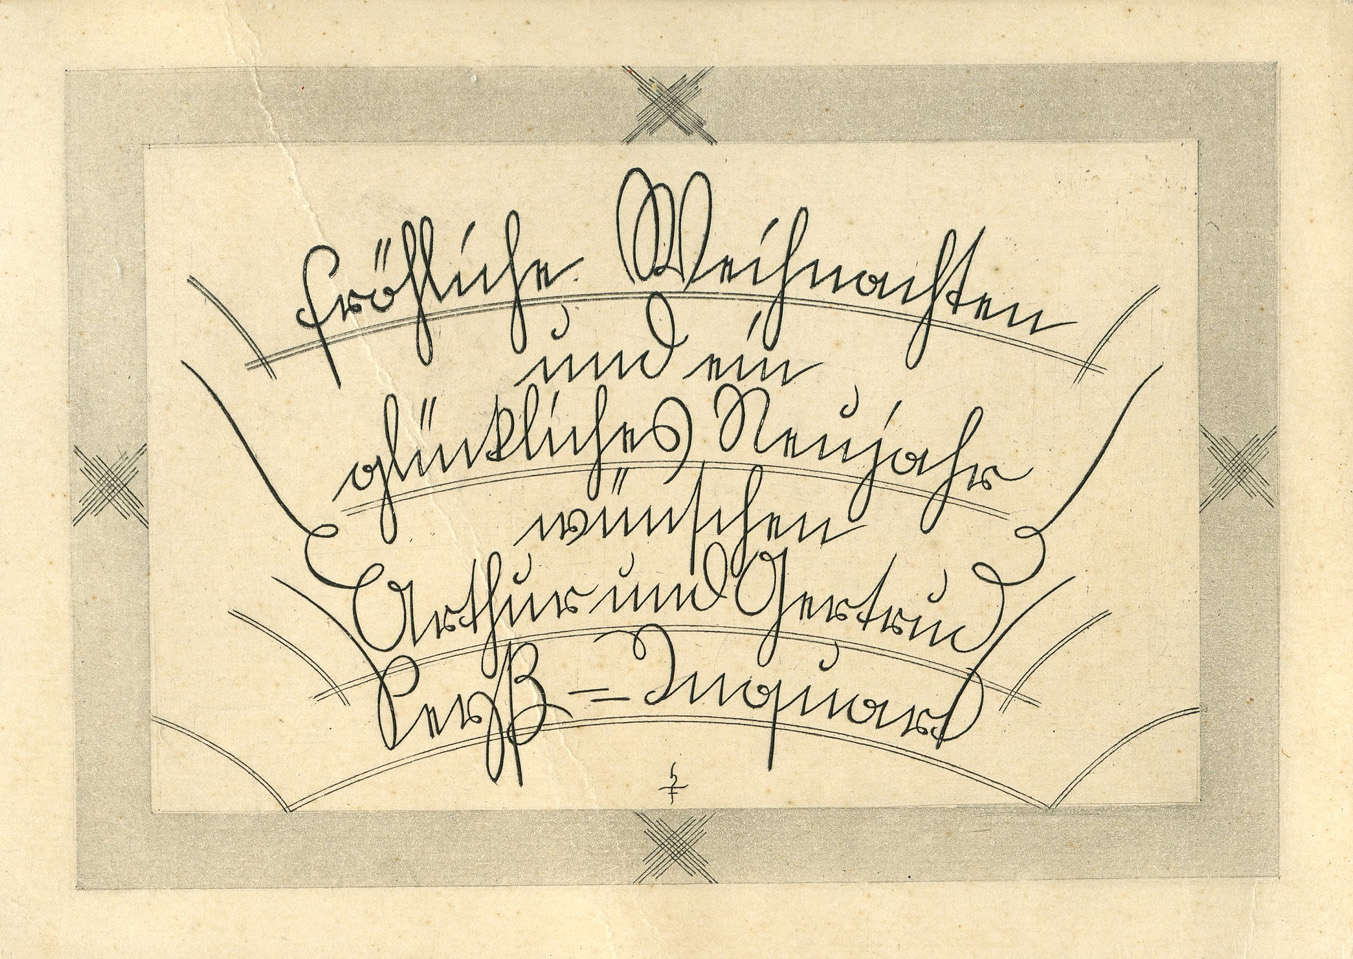 fröhliche Weihnachten
und ein
glückliches Neujahr
wünschen
Arthur und Gertrud